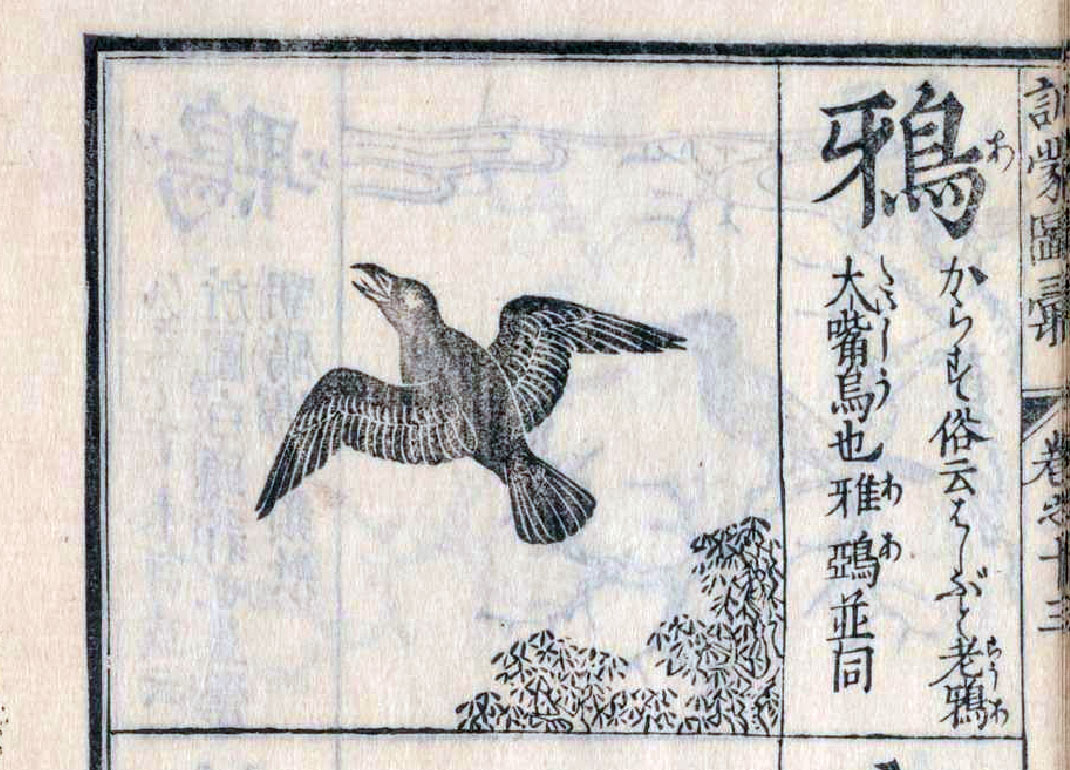 訓蒙圖彙 巻之十三
鴉 あ
からす俗云はしぶと老鴉 らうあ
大嘴烏也雅 あ 鵶 あ 並同